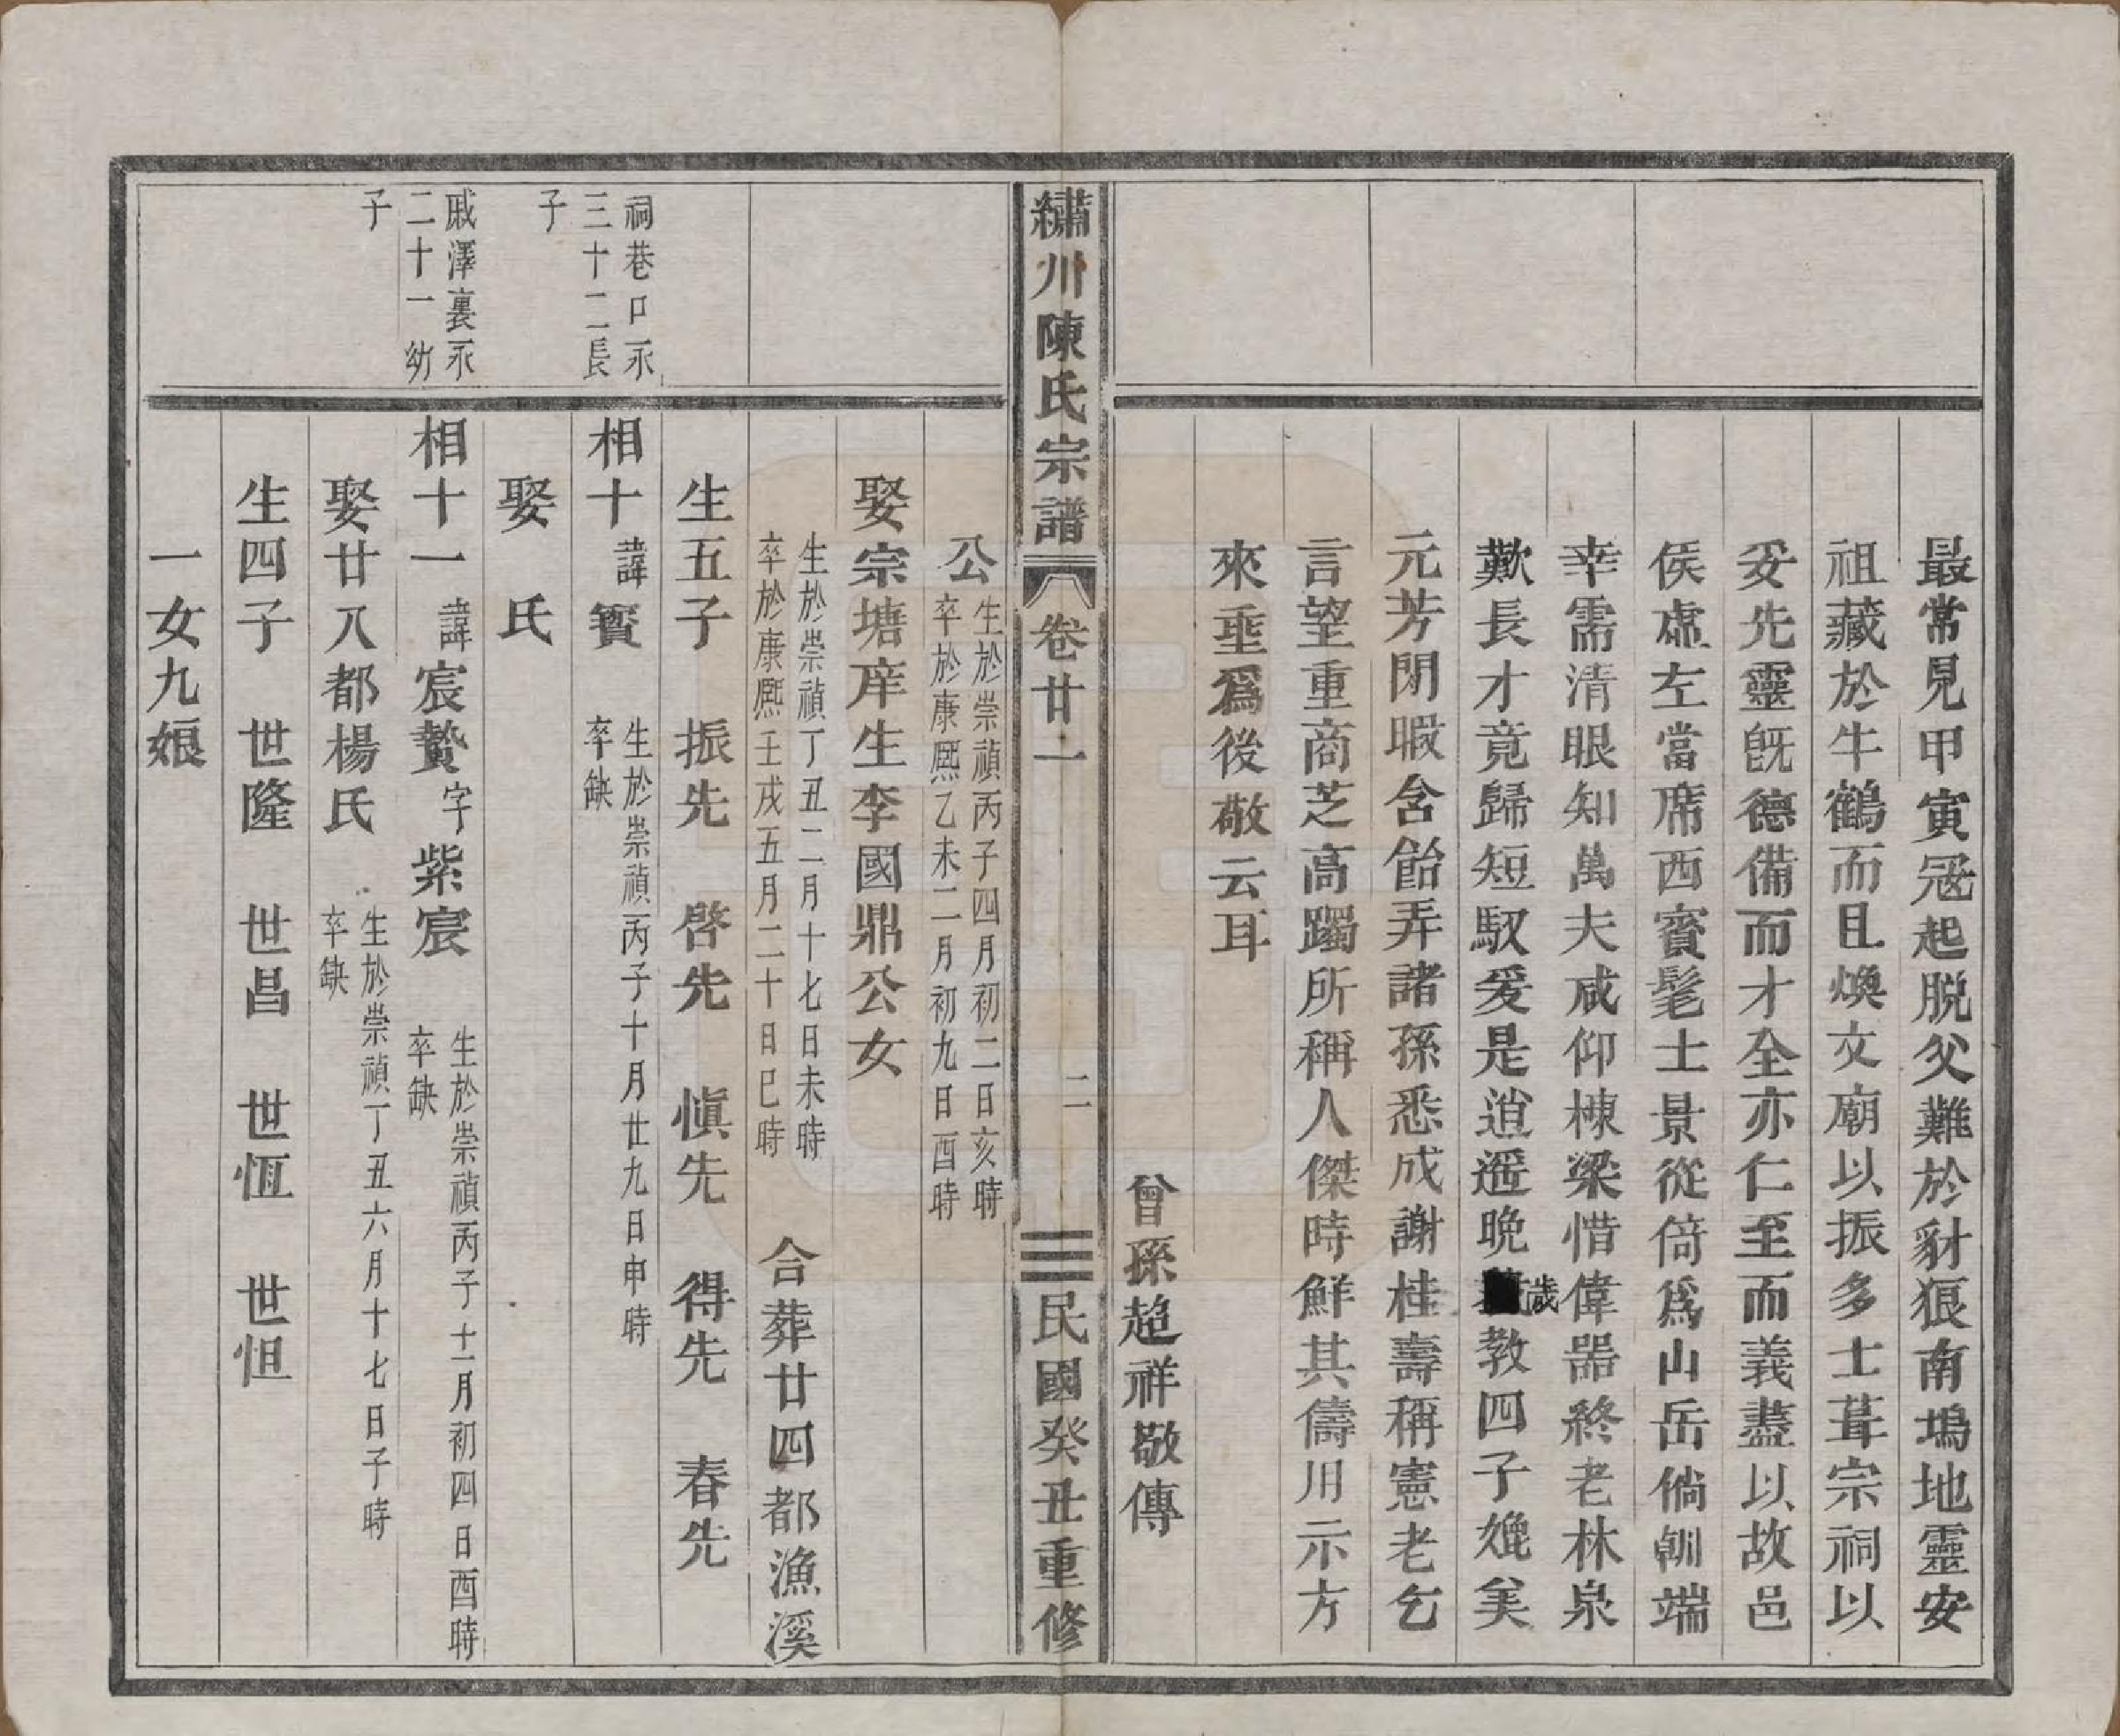 最常見甲寅冦起脱父難於豺狼南塢地靈安
祖藏於牛鶴而且煥文廟以振多士葺宗祠以
妥先靈旣德備而才全亦仁至而義盡以故邑
侯虛左當席西賓髦士景從倚爲山岳倘朝端
幸需清眼知萬夫咸仰棟梁惜偉器終老林泉
歎長才竟歸短馭爰是逍遥晚歲教四子媲美
元芳閒暇含飴弄諸孫悉成謝桂壽稱憲老乞
言望重商芝高躅所稱人傑時鮮其儔用示方
來垂爲後敬云耳
曾孫超祥敬傳
繡川陳氏宗譜 卷廿一 二 民國癸丑重修
公 生於崇禎丙子四月初二日亥時
卒於康熙乙未二月初九日酉時
娶宗塘庠生李國鼎公女
生於崇禎丁丑二月十七日未時
卒於康熙壬戌五月二十日巳時
合葬廿四都漁溪
生五子 振先 啓先 愼先 得先 春先
祠巷口永
三十二長
子
相十 諱賓 生於崇禎丙子十月廿九日申時
卒缺
娶 氏
戚澤裏永
二十一幼
子
相十一 諱宸贄字紫宸 生於崇禎丙子十一月初四日酉時
卒缺
娶廿八都楊氏 生於崇禎丁丑六月十七日子時
卒缺
生四子 世隆 世昌 世恆 世怛
一女九娘